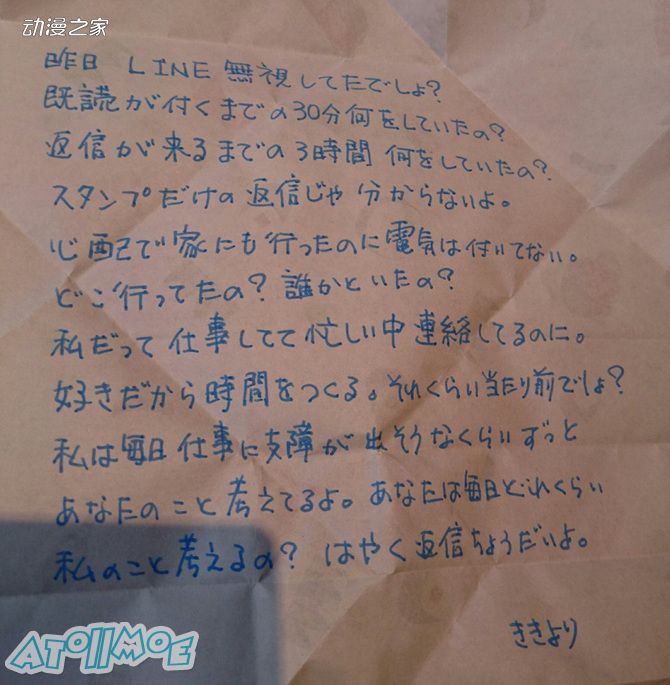 动漫之家
昨日 LINE 無視してたでしょ?
既読が付くまでの30分何をしていたの?
返信が来るまでの3時間 何をしていたの?
スタンプだけの返信じゃ 分からないよ。
心配で家にも行ったのに電気は付いてない。
どこ行ってたの? 誰かといたの?
私だって仕事してて忙しい中連絡してるのに。
好きだから時間をつくる。それくらい当たり前でしょ?
私は毎日仕事に支障が出そうなくらいずっと
あなたのこと考えてるよ。あなたは毎日どれくらい
私のこと考えるの? はやく返信ちょうだいよ。
ききより
ATOllMOE